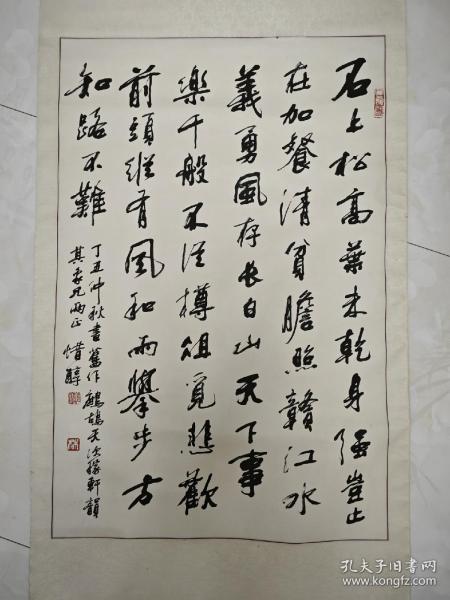 石上松高葉未乾身强豈止
在加餐清貧膽照贛江水
義勇風存长白山天下事
樂千般不從樽俎覓悲歡
前頭縱有風和雨舉步方
知路不難
丁丑仲秋書舊作鷓鴣天次稼軒韻
其录兄两正 惜醇
孔夫子旧书网
www.kongfz.com